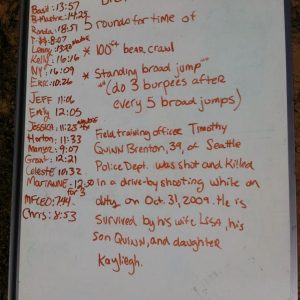 Basil: 13:57
B-Mantre: 14:25
Ronda: 18:51
T-$$ 8:07
Lenny: 13:20
Kelly: 16:16
NY: 16:09
Eric: 10:26
JEFF 11:06
Emily 12:05
Jessica: 11:23
Horton: 11:33
Manser: 9:07
Grant: 12:21
Celeste 10:32
MARIANNE: 12:50
for 3
MFCEO: 7:41
Chris: 8:53
5 rounds for time of
* 100ft bear crawl
* Standing broad jump**
**(do 3 burpees after
every 5 broad jumps)
Field training officer Timothy
QUINN Brenton, 39, of Seattle
Police Dept. was shot and killed
in a drive-by shooting while on
duty on Oct. 31, 2009. He is
survived by his wife LISA, his
son QUINN, and daughter
Kayliegh.